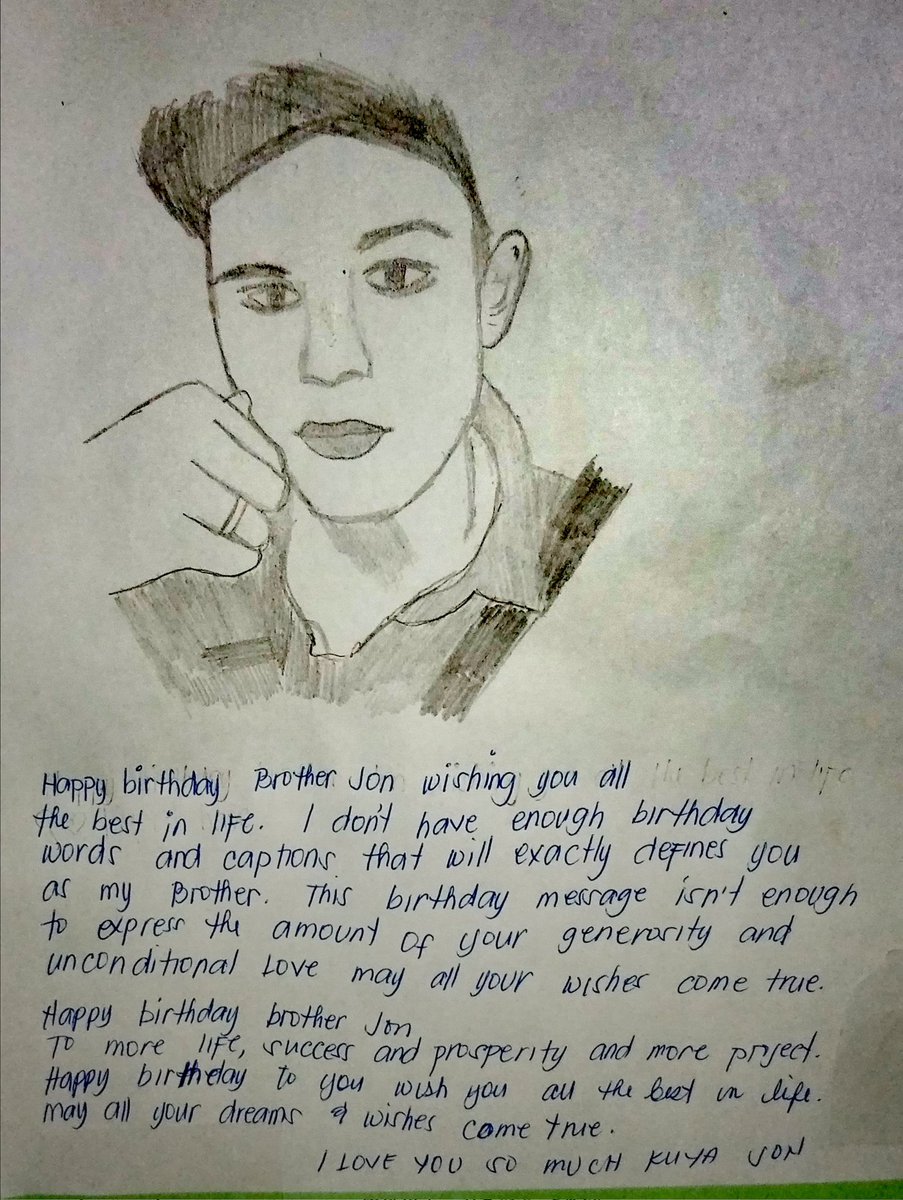 Happy birthday Brother Jon wishing you all the best in life
the best in life. I don't have enough birthday
words and captions that will exactly defines you
as my Brother. This birthday message isn't enough
to express the amount of your generosity and
unconditional Love may all your wishes come true.
Happy birthday brother Jon
To more life, success and prosperity and more project.
Happy birthday to you wish you all the best in life.
may all your dreams & wishes come true.
I LOVE YOU SO MUCH KUYA JON